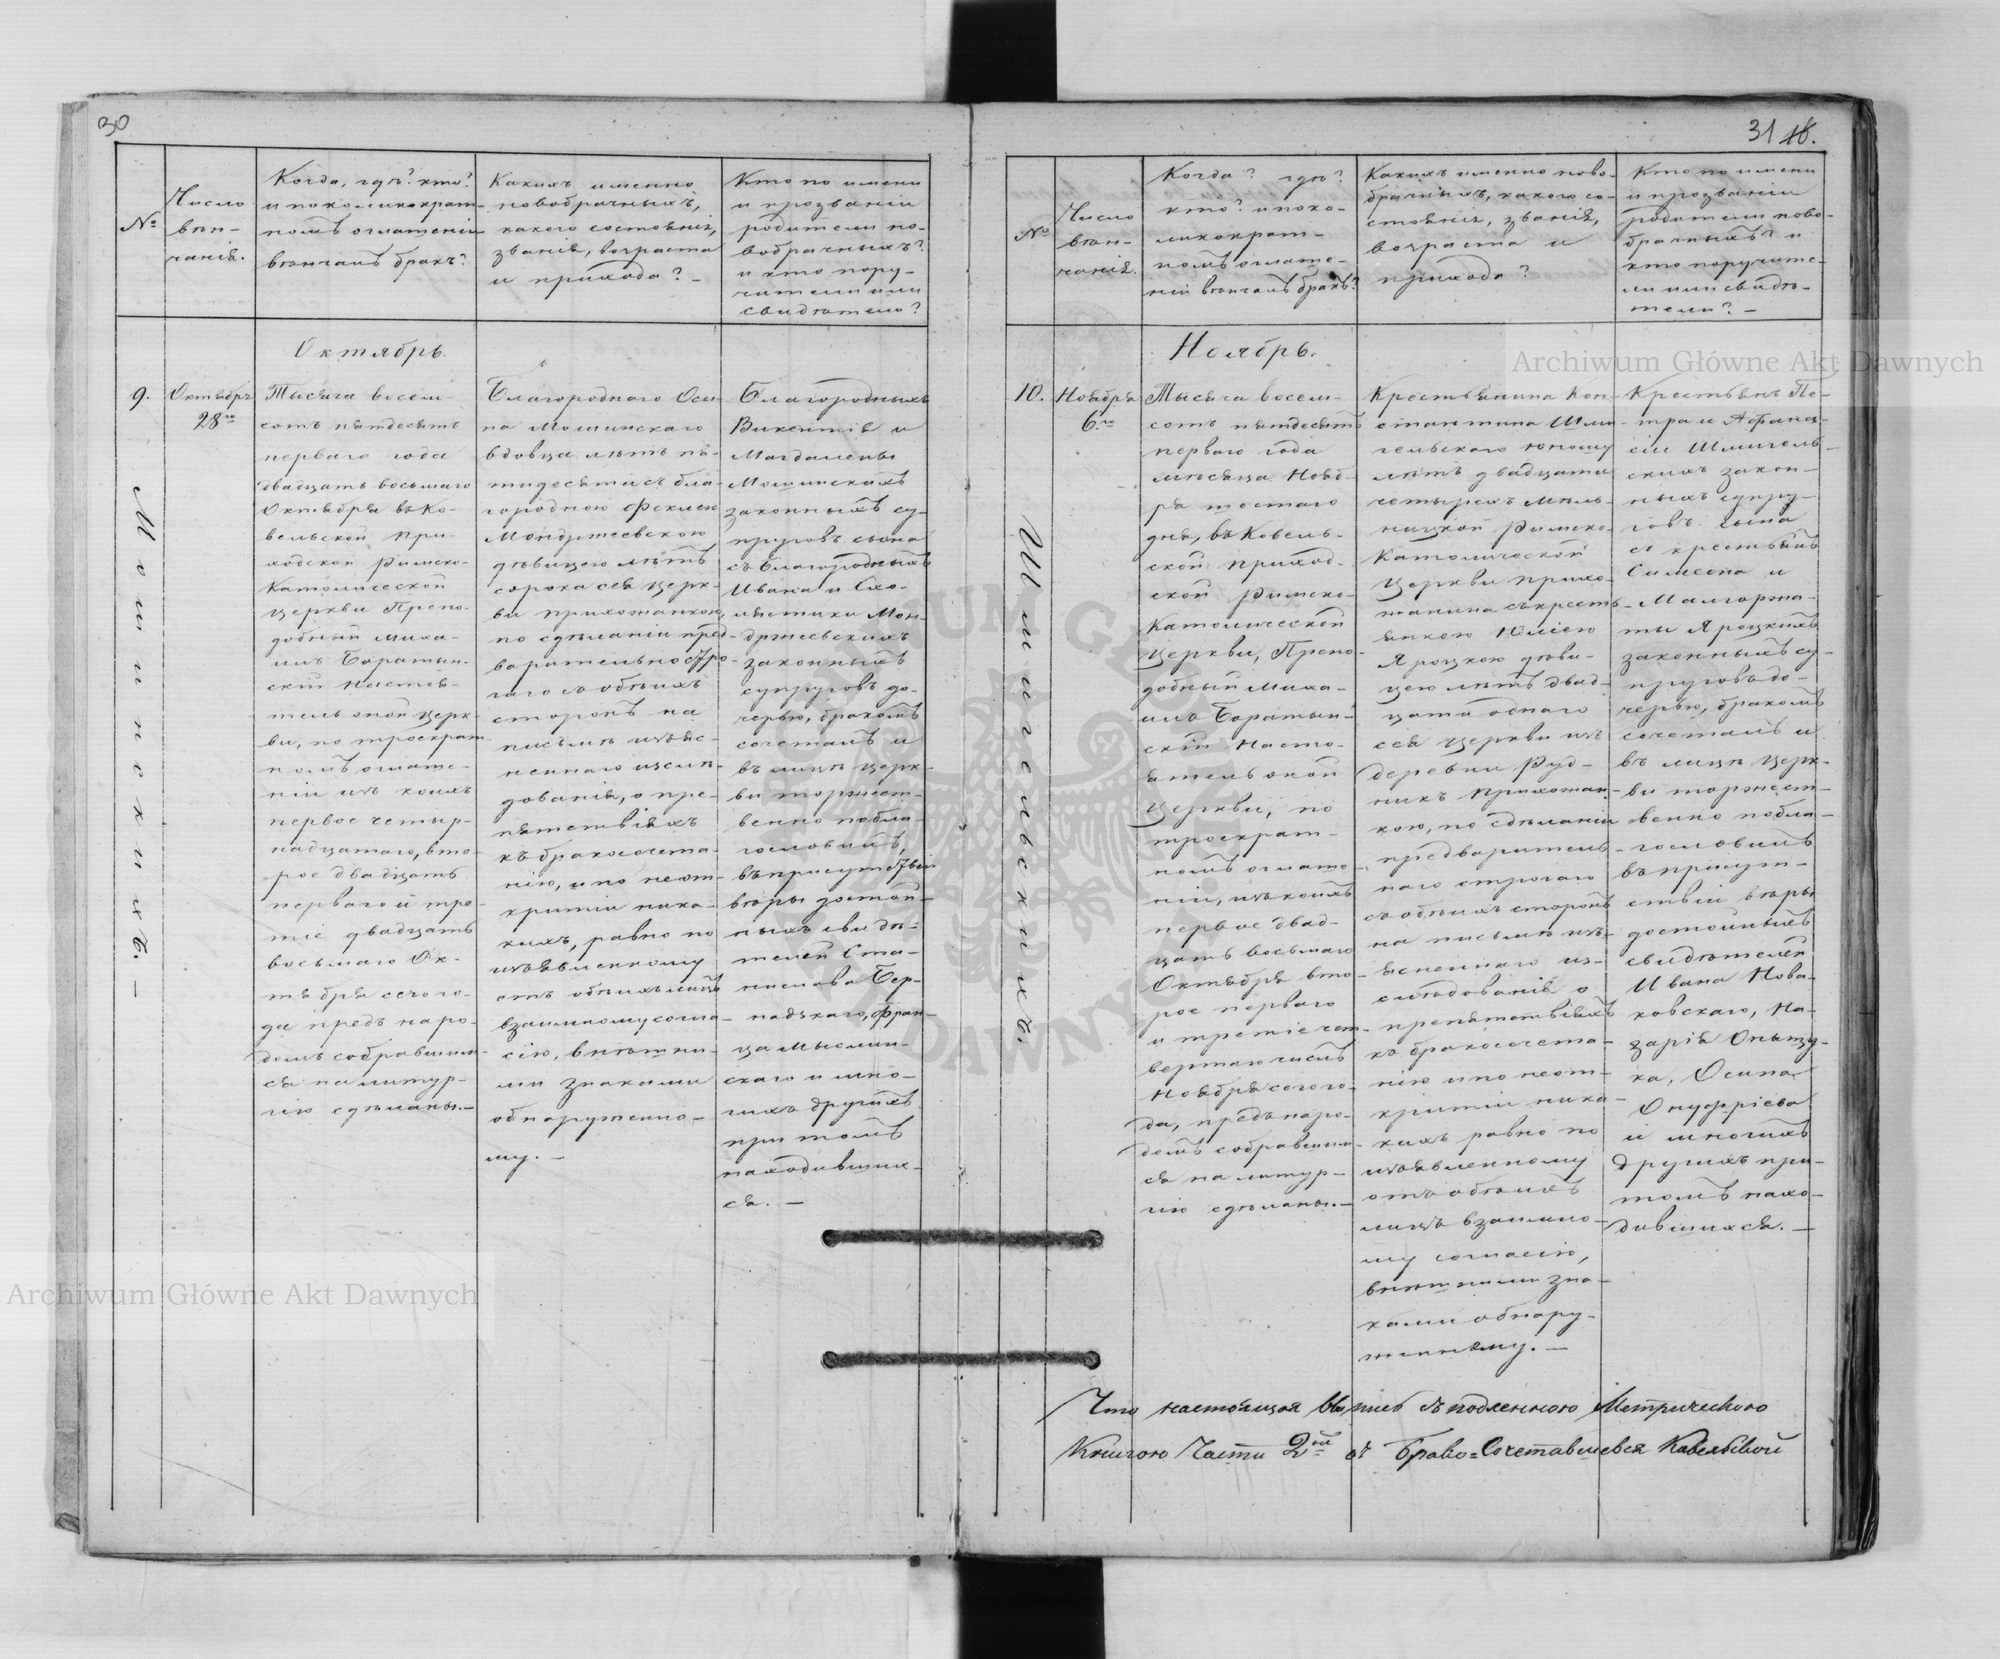 30
№
Число
вѣн-
чанія.
Когда, гдѣ? кто?
и поколикократ-
номъ оглашеніи
вѣнчанъ бракъ?
Какихъ именно
новобрачныхъ,
какого состоянія,
званія, возраста
и прихода? -
Кто по имени
и прозваніи
родители но-
вобрачныхъ?
и кто пору-
чители или
свидѣтели?
Октябрь.
9.
Октября
28го
Мошинскихъ. -
Тысяча восем-
сотъ пятдесятъ
перваго года
двадцать восьмаго
Октября въ Ко-
вельской При-
ходской Римско-
Католической
Церкви Препо-
добный Миха-
илъ Боратын-
скій Настоя-
тель оной Церк-
ви, по троекрат-
номъ оглаше-
ніи изъ коихъ
первое четыр-
надцатаго, вто-
рое двадцать
перваго и тре-
тіе двадцать
восьмаго Ок-
тября сего го-
да предъ наро-
домъ собравшим-
ся на литур-
гію сдѣланы. -
Благороднаго Оси-
па Мошинскаго
вдовца лѣтъ пя-
тидесяти съ бла-
городною Феклею
Мондржеевскою
дѣвицею лѣтъ
сорока сея Церк-
ви прихожанкою,
по сдѣланіи пред-
варительно стро-
гаго съ обѣихъ
сторонъ на
письмѣ изъяс-
неннаго изслѣ-
дованія, о пре-
пятствіяхъ
къ бракосочета-
нію, и по неот-
крытіи ника-
кихъ, равно по
изъявленному
отъ обѣихъ лицъ
взаимному согла-
сію, внѣшни-
ми знаками
обнаруженно-
му. -
Благородныхъ
Викентія и
Магдалены
Мошинскихъ
законныхъ су-
пруговъ сына
съ Благородныхъ
Ивана и Схо-
ластики Мон-
држеевскихъ
законныхъ
супруговъ до-
черью, бракомъ
сочеталъ и
въ лицѣ Церк-
ви торжест-
венно побла-
гословилъ,
въ присутствіи
вѣры достой-
ныхъ свидѣ-
телей Ста-
нислава Бер-
надскаго, Фран-
ца Мыслин-
скаго и мно-
гихъ другихъ
при томъ
находивших-
ся. -
31 16.
№
Число
вѣн-
чанія.
Когда? гдѣ?
кто? и поко-
ликократ-
номъ оглаше-
ніи вѣнчанъ бракъ?
Какихъ именно ново-
брачныхъ, какого со-
стоянія, званія,
возраста и
прихода?
Кто по имени
и прозваніи
родители ново-
брачныхъ? и
кто поручите-
ли или свидѣ-
тели? -
Ноябрь.
10.
Ноября
6го
Шмигельскихъ.
Тысяча восем-
сотъ пятдесятъ
перваго года
мѣсяца Нояб-
ря шестаго
дня, въ Ковель-
ской Приход-
ской Римско-
Католической
Церкви, Препо-
добный Миха-
илъ Боратын-
скій Насто-
ятель оной
Церкви, по
троекрат-
номъ оглаше-
ніи, изъ коихъ
первое двад-
цать восьмаго
Октября вто-
рое перваго
и третіе чет-
вертаго числъ
Ноября сего го-
да, предъ наро-
домъ собравшим-
ся на литур-
гію сдѣланы. -
Крестьянина Кон-
стантина Шми-
гельскаго юношу
лѣтъ двадцати
четырехъ Мѣль-
ницкой Римско-
Католической
Церкви прихо-
жанина съ кресть-
янкою Юліею
Яроцкою дѣви-
цею лѣтъ двад-
цати одного
сея Церкви изъ
деревни Руд-
никъ прихожан-
кою, по сдѣланіи
предваритель-
наго строгаго
съ обѣихъ сторонъ
на письмѣ изъ-
ясненнаго из-
слѣдованія о
препятствіяхъ
къ бракосочета-
нію и по неот-
крытіи ника-
кихъ равно по
изъявленному
отъ обѣихъ
лицъ взаимно-
му согласію,
внѣшними зна-
ками обнару-
женному. -
Крестьянъ Пе-
тра и Афана-
сіи Шмигель-
скихъ закон-
ныхъ супру-
говъ сына
съ крестьянъ
Симеона и
Малгоржа-
ты Яроцкихъ
законныхъ су-
пруговъ до-
черью, бракомъ
сочеталъ и
въ лицѣ Церк-
ви торжест-
венно побла-
гословилъ
въ присут-
ствіи вѣры
достойныхъ
свидѣтелей
Ивана Нова-
ковскаго, На-
зарія Опыцу-
ка, Осипа
Онуфріева
и многихъ
другихъ при-
томъ нахо-
дившихся. -
Что настоящая Выпись съ подленною Метрическою
Книгою Части 2ой о Брако=Сочетавшевся Ковельской
Archiwum Główne Akt Dawnych
Archiwum Główne Akt Dawnych